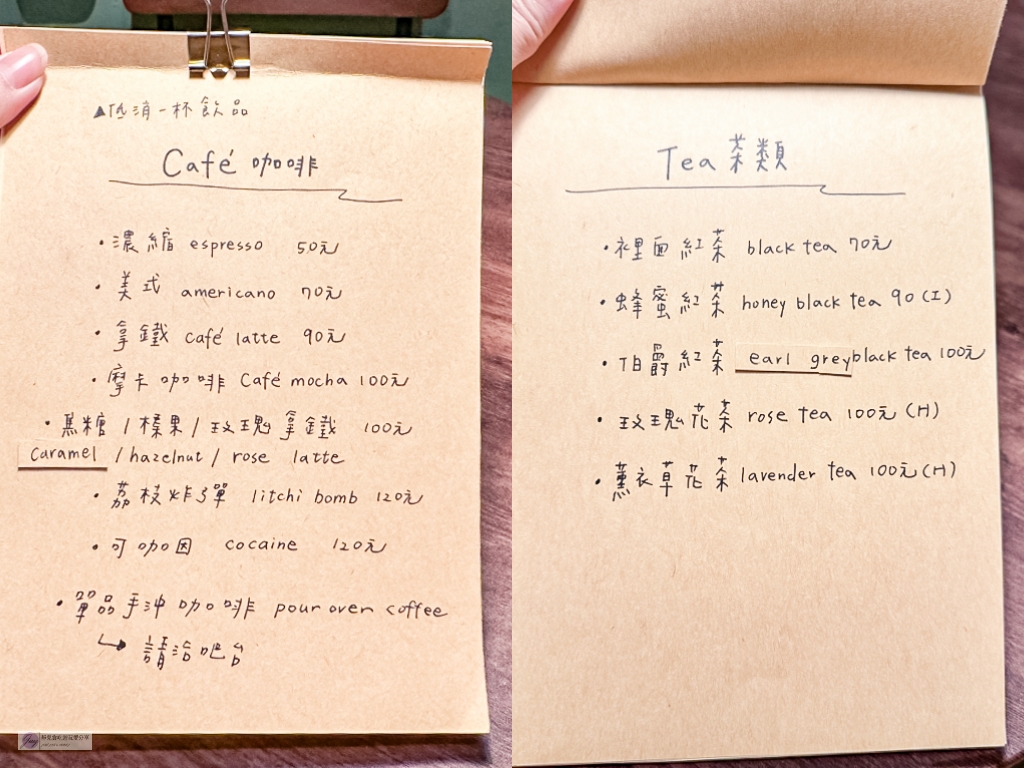 ▲低消一杯飲品
Café 咖啡
・濃縮 espresso 50元
・美式 americano 70元
・拿鐵 café latte 90元
・摩卡咖啡 Café mocha 100元
・焦糖/榛果/玫瑰拿鐵 100元
caramel /hazelnut/ rose latte
・荔枝炸彈 litchi bomb 120元
・可咖因 cocaine 120元
・單品手沖咖啡 pour over coffee
↳ 請洽吧台
Tea 茶類
・裡面紅茶 black tea 70元
・蜂蜜紅茶 honey black tea 90 (I)
・伯爵紅茶 earl grey black tea 100元
・玫瑰花茶 rose tea 100元 (H)
・薰衣草花茶 lavender tea 100元 (H)